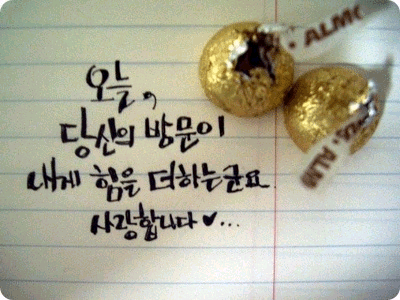 오늘,
당신의 방문이
내게 힘을 더하는군요
사랑합니다♥...
ALM
ALM